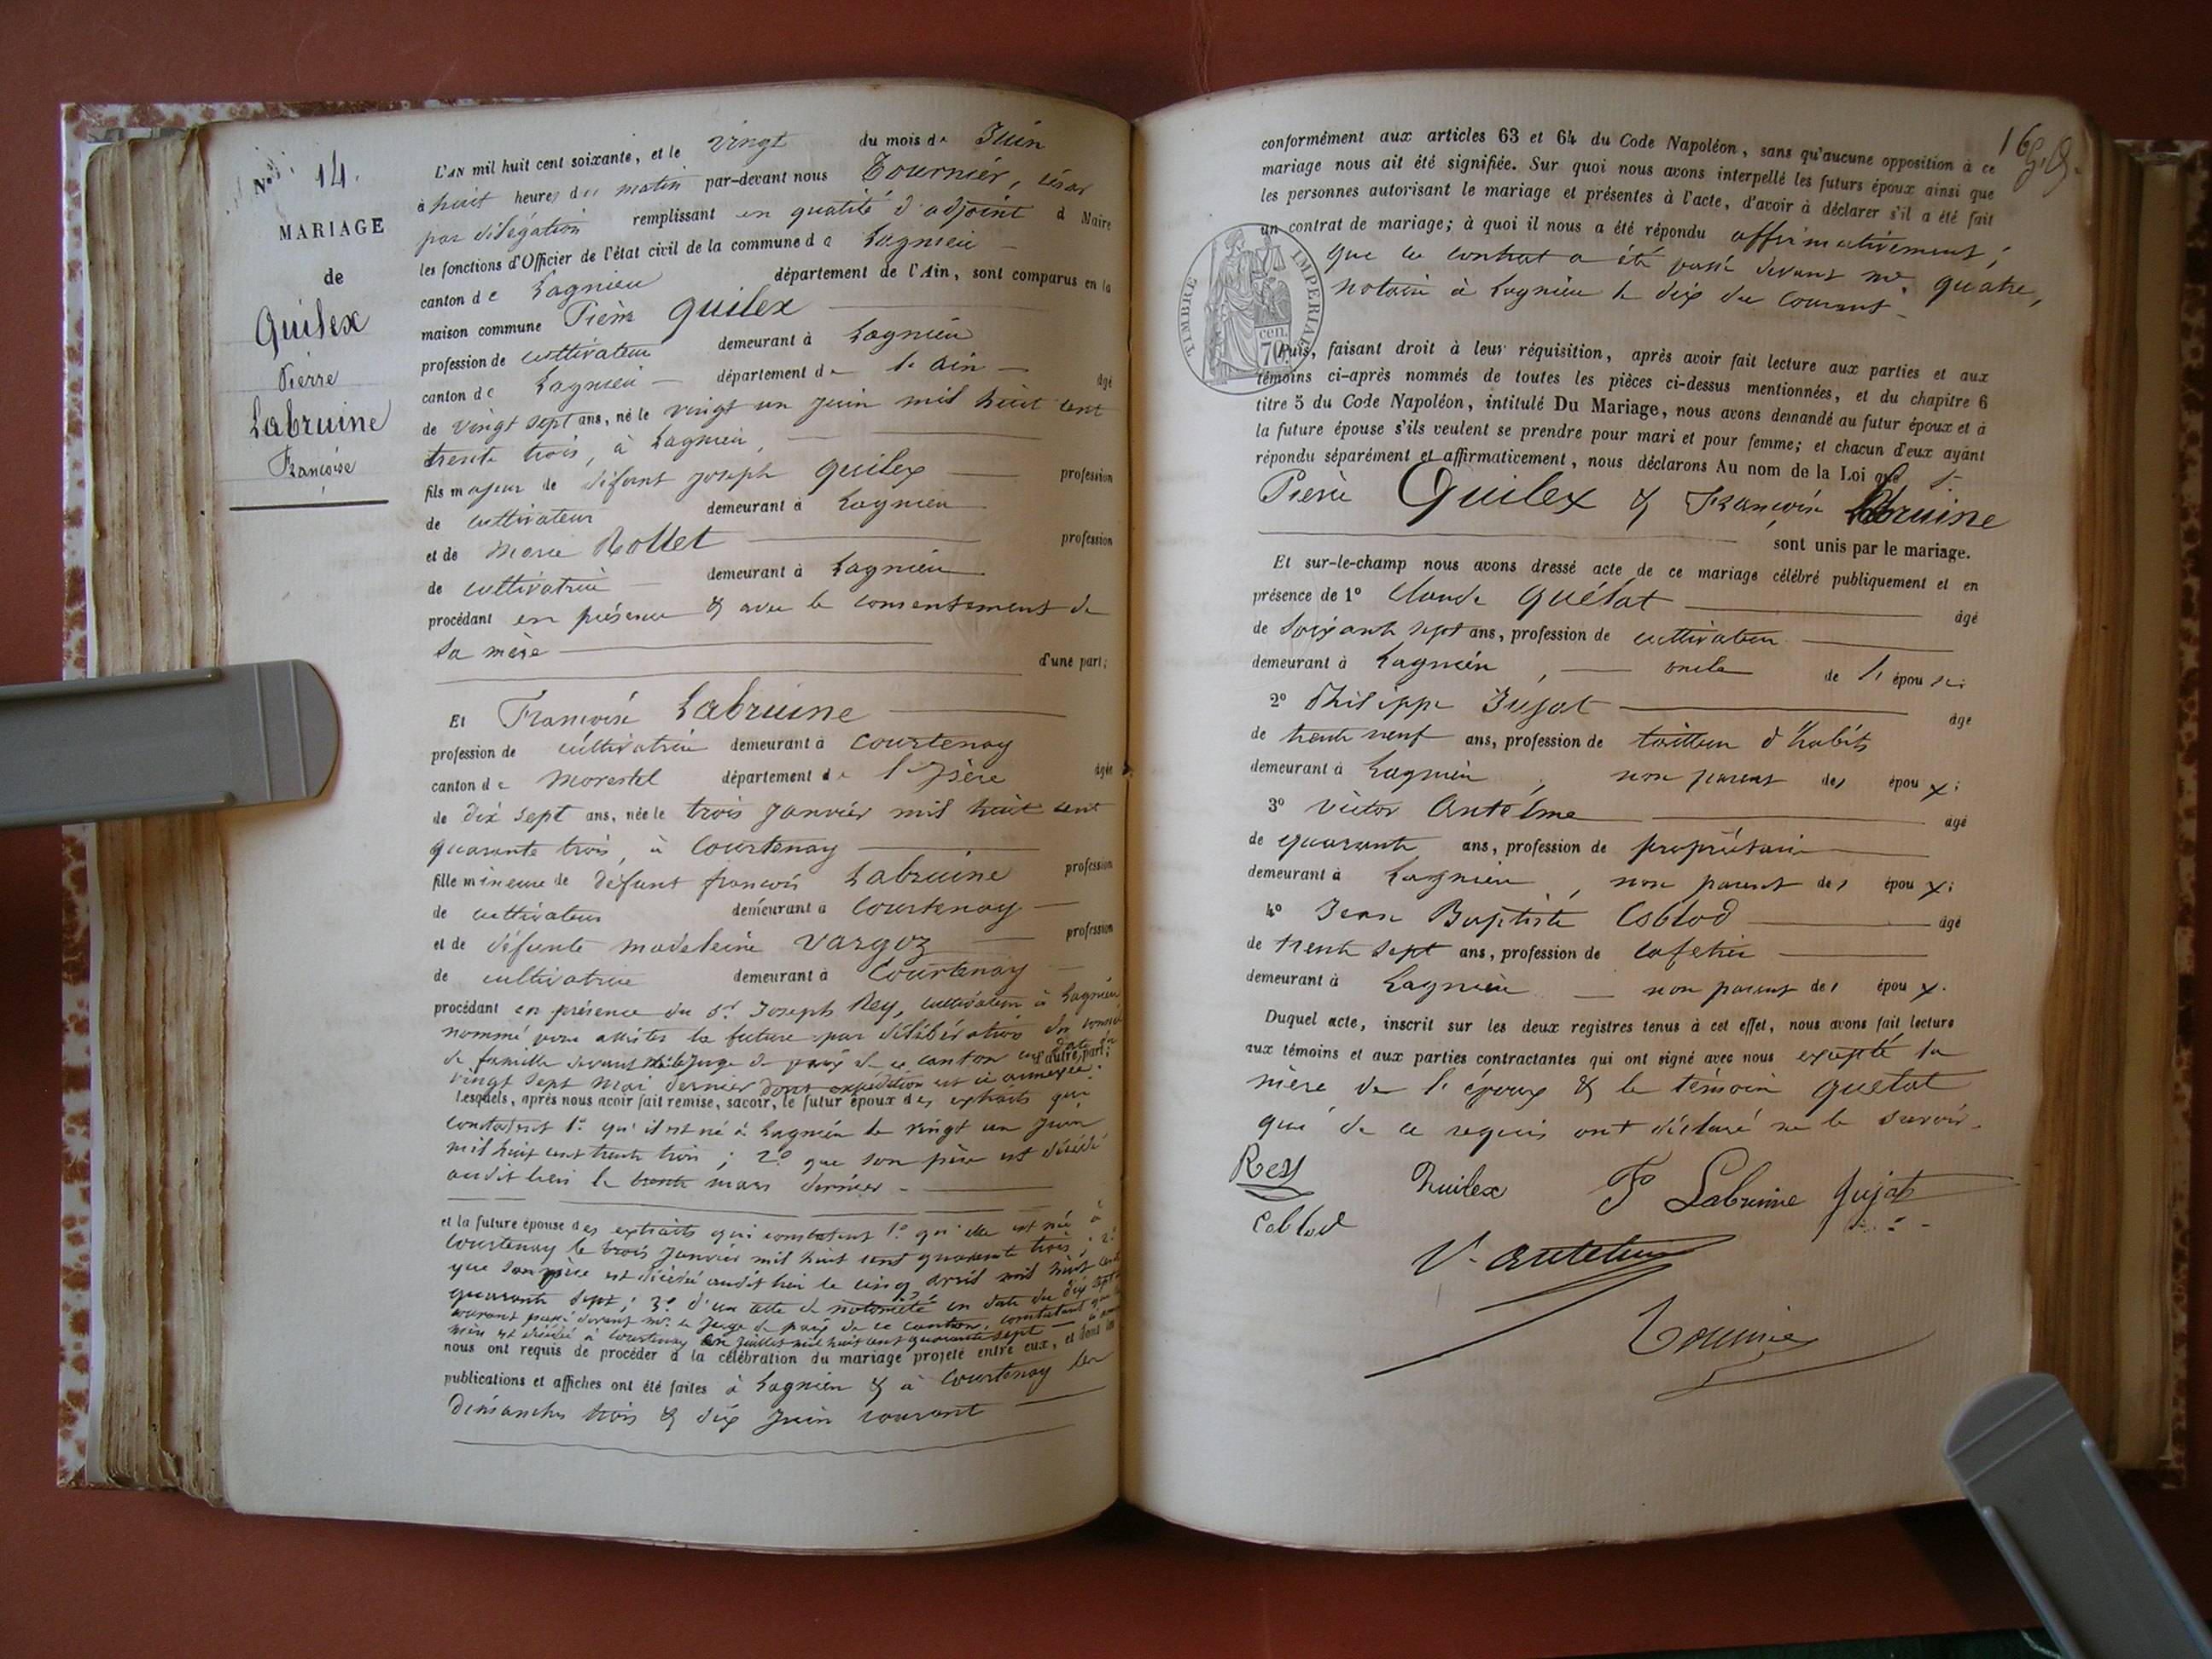 N° 14.
MARIAGE
de
Quilex
Pierre
Labruine
Françoise
L'AN mil huit cent soixante, et le vingt du mois de Juin
à huit heures du matin par-devant nous Tournier, César
par délégation remplissant en qualité d'adjoint d Maire
les fonctions d'Officier de l'état civil de la commune de Lagnieu
canton de Lagnieu département de l'Ain, sont comparus en la
maison commune Pierre Quilex
profession de cultivateur demeurant à Lagnieu
canton de Lagnieu département de l'Ain âgé
de vingt sept ans, né le vingt un juin mil huit cent
trente trois, à Lagnieu,
fils majeur de défunt joseph Quilex profession
de cultivateur demeurant à Lagnieu
et de Marie Rollet profession
de cultivatrice demeurant à Lagnieu
procédant en présence & avec le consentement de
sa mère
d'une part;
Et Françoise Labruine
profession de cultivatrice demeurant à Courtenay
canton de Morestel département de l'Isère âgée
de dix sept ans, née le trois janvier mil huit cent
quarante trois, à Courtenay
fille mineure de défunt françois Labruine profession
de cultivateur demeurant à Courtenay
et de défunte madeleine Vargoz profession
de cultivatrice demeurant à Courtenay
procédant en présence du Sr. Joseph Rey, cultivateur à Lagnieu,
nommé pour assister la future par délibération du conseil
de famille devant Mr le Juge de paix de ce canton en date du d'autre part;
vingt sept mai dernier dont expédition est ci annexée.
Lesquels, après nous avoir fait remise, savoir, le futur époux des extraits qui
constatent 1° qu'il est né à Lagnieu le vingt un juin
mil huit cent trente trois; 2° que son père est décédé
audit lieu le trente mars dernier
et la future épouse des extraits qui constatent 1° qu'elle est née à
Courtenay le trois janvier mil huit cent quarante trois; 2°
que son père est décédé audit lieu le cinq avril mil huit cent
quarante sept; 3° d'un acte de notoriété en date du dix sept
courant passé devant Mr. le Juge de paix de ce canton, constatant que
mère est décédée à Courtenay en juillet mil huit cent quarante sept
nous ont requis de procéder à la célébration du mariage projeté entre eux, et dont les
publications et affiches ont été faites à Lagnieu & à Courtenay les
dimanches trois & dix juin courant
169
conformément aux articles 63 et 64 du Code Napoléon, sans qu'aucune opposition à ce
mariage nous ait été signifiée. Sur quoi nous avons interpellé les futurs époux ainsi que
les personnes autorisant le mariage et présentes à l'acte, d'avoir à déclarer s'il a été fait
un contrat de mariage; à quoi il nous a été répondu affirmativement;
que le contrat a été passé devant Me. Quatre,
notaire à Lagnieu le dix du courant.
TIMBRE IMPERIAL
70 cen.
Puis, faisant droit à leur réquisition, après avoir fait lecture aux parties et aux
témoins ci-après nommés de toutes les pièces ci-dessus mentionnées, et du chapitre 6
titre 5 du Code Napoléon, intitulé Du Mariage, nous avons demandé au futur époux et à
la future épouse s'ils veulent se prendre pour mari et pour femme; et chacun d'eux ayant
répondu séparément et affirmativement, nous déclarons Au nom de la Loi que
Pierre Quilex & Françoise Labruine
sont unis par le mariage.
Et sur-le-champ nous avons dressé acte de ce mariage célébré publiquement et en
présence de 1° Claude Quélat âgé
de soixante sept ans, profession de cultivateur
demeurant à Lagnieu, oncle de l'épou
2° Philippe Jujat âgé
de trente neuf ans, profession de tailleur d'habits
demeurant à Lagnieu, non parent des époux;
3° Victor Antelme âgé
de quarante ans, profession de propriétaire
demeurant à Lagnieu, non parent des époux;
4° Jean Baptiste Coblod âgé
de trente sept ans, profession de cafetier
demeurant à Lagnieu non parent des époux.
Duquel acte, inscrit sur les deux registres tenus à cet effet, nous avons fait lecture
aux témoins et aux parties contractantes qui ont signé avec nous excepté la
mère de l'époux & le témoin Quélat
qui de ce requis ont déclaré ne le savoir.
Rey Quilex F Labruine Jujat
Coblod
V. Antelme
Tournier